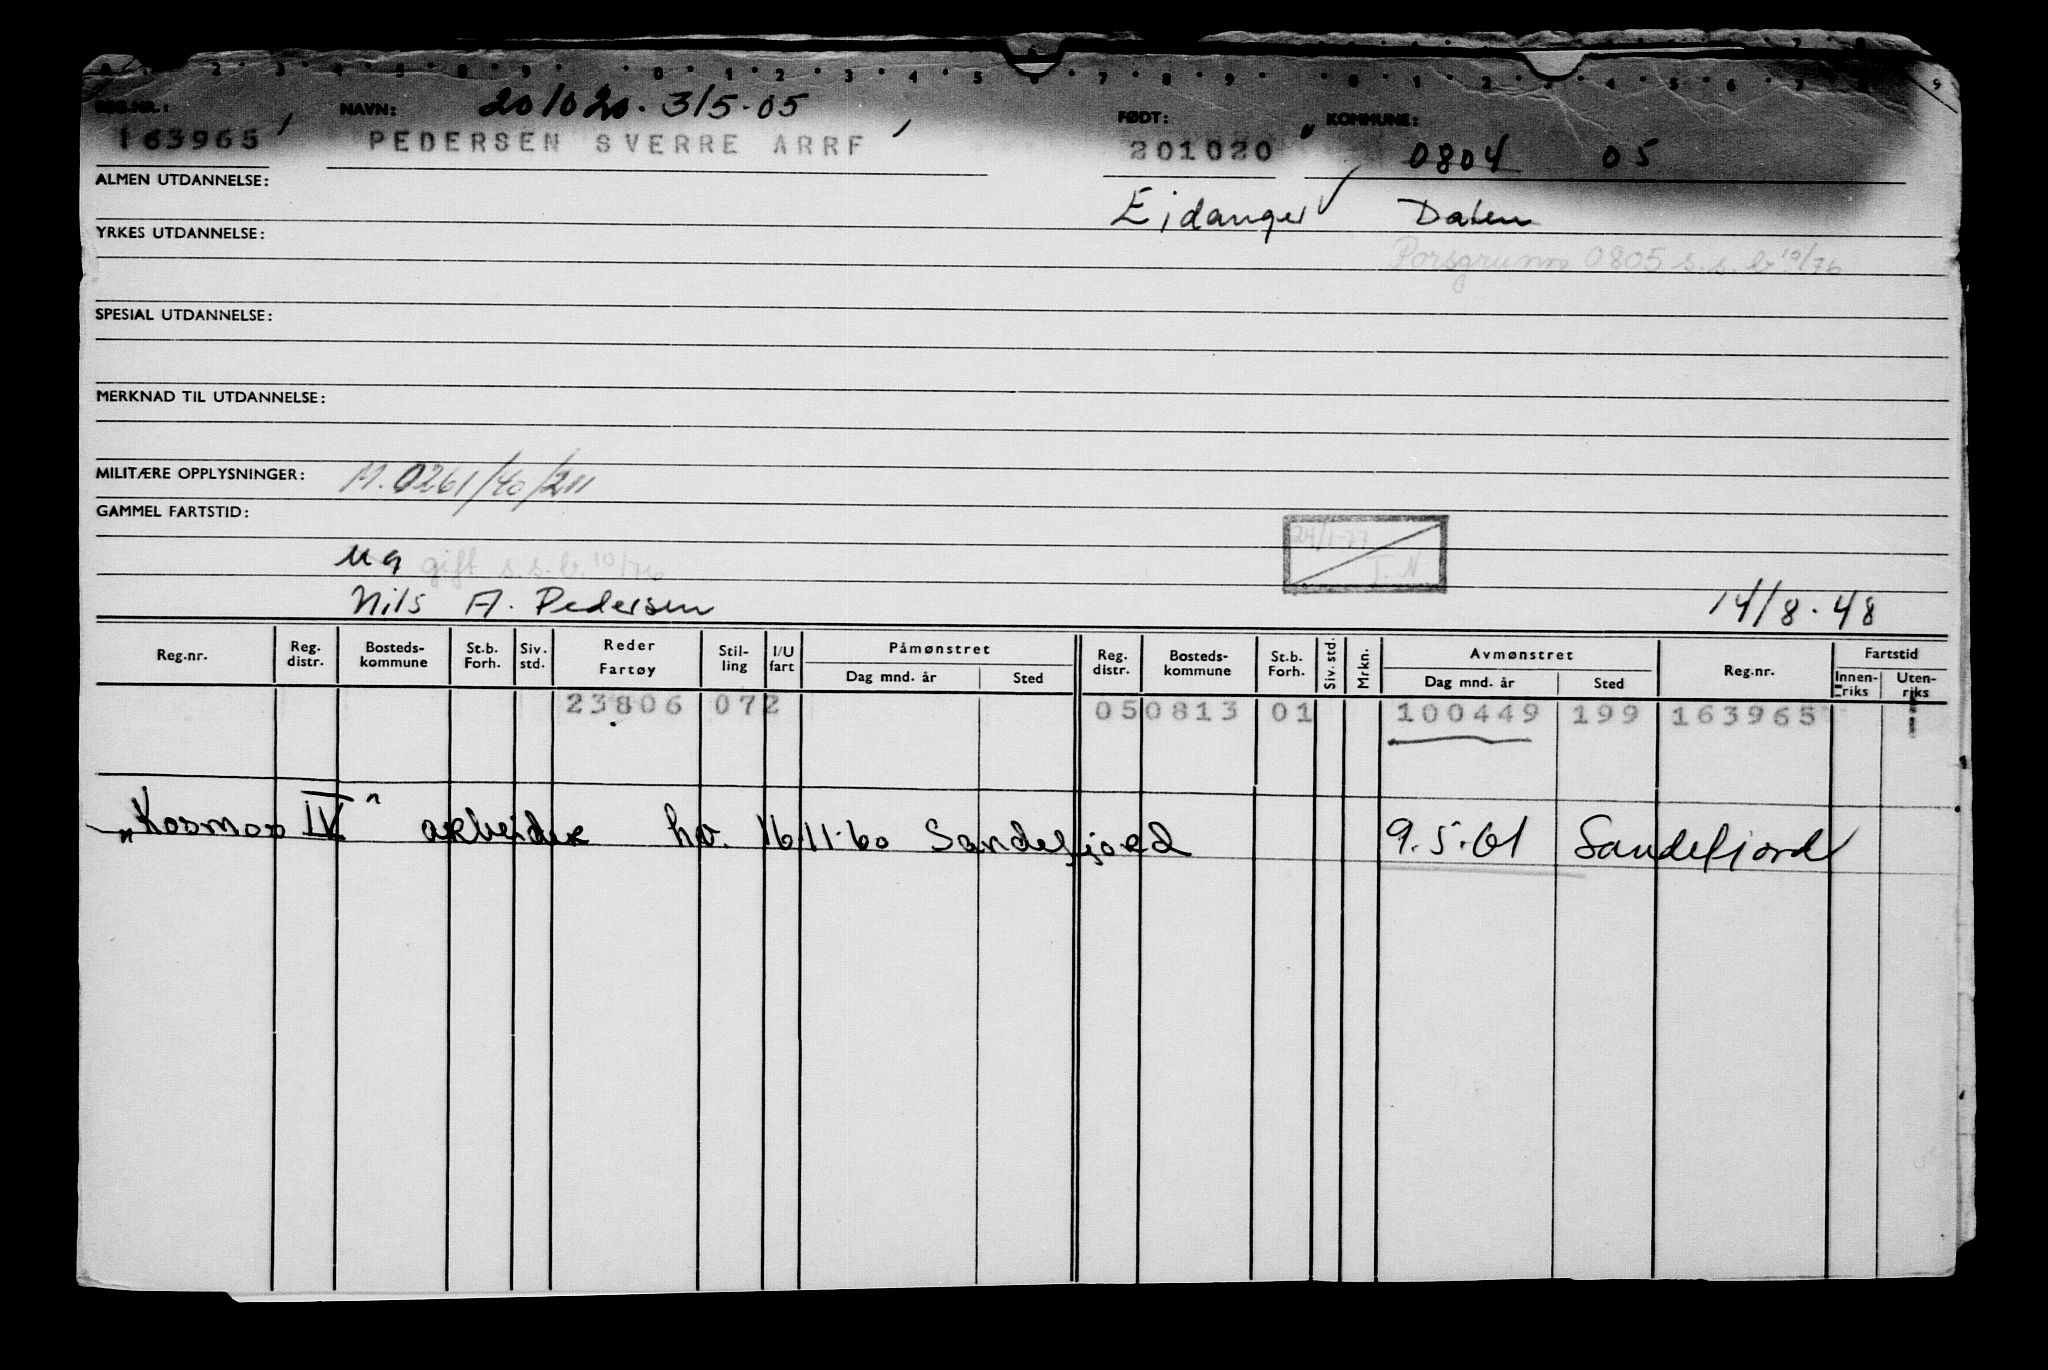 REG.NR.: NAVN: 201020. 315.05 FØDT: KOMMUNE:
163965 PEDERSEN SVERRE ARRF 201020 0804 05
ALMEN UTDANNELSE:
Eidanger Dalen
YRKES UTDANNELSE:
Porsgrunn 0805 s.s.b 10/76
SPESIAL UTDANNELSE:
MERKNAD TIL UTDANNELSE:
MILITÆRE OPPLYSNINGER: M. 0261/40/211
GAMMEL FARTSTID:
24/1-77
ug gift s.s.b. 10/76 J. N
Nils A. Pedersen 14/8.48
Reg.nr. Reg. distr. Bosteds-kommune St.b. Forh. Siv. std. Reder Fartøy Stil-ling I/U fart Påmønstret Dag mnd. år Sted Reg. distr. Bosteds-kommune St.b. Forh. Siv. std. Mrkn. Avmønstret Dag mnd. år Sted Reg.nr. Fartstid Innen-riks Uten-riks
23806 072 05 0813 01 100449 199 163965
„Kosmos IV" arbeider hv. 16.11.60 Sandefjord 9.5.61 Sandefjord